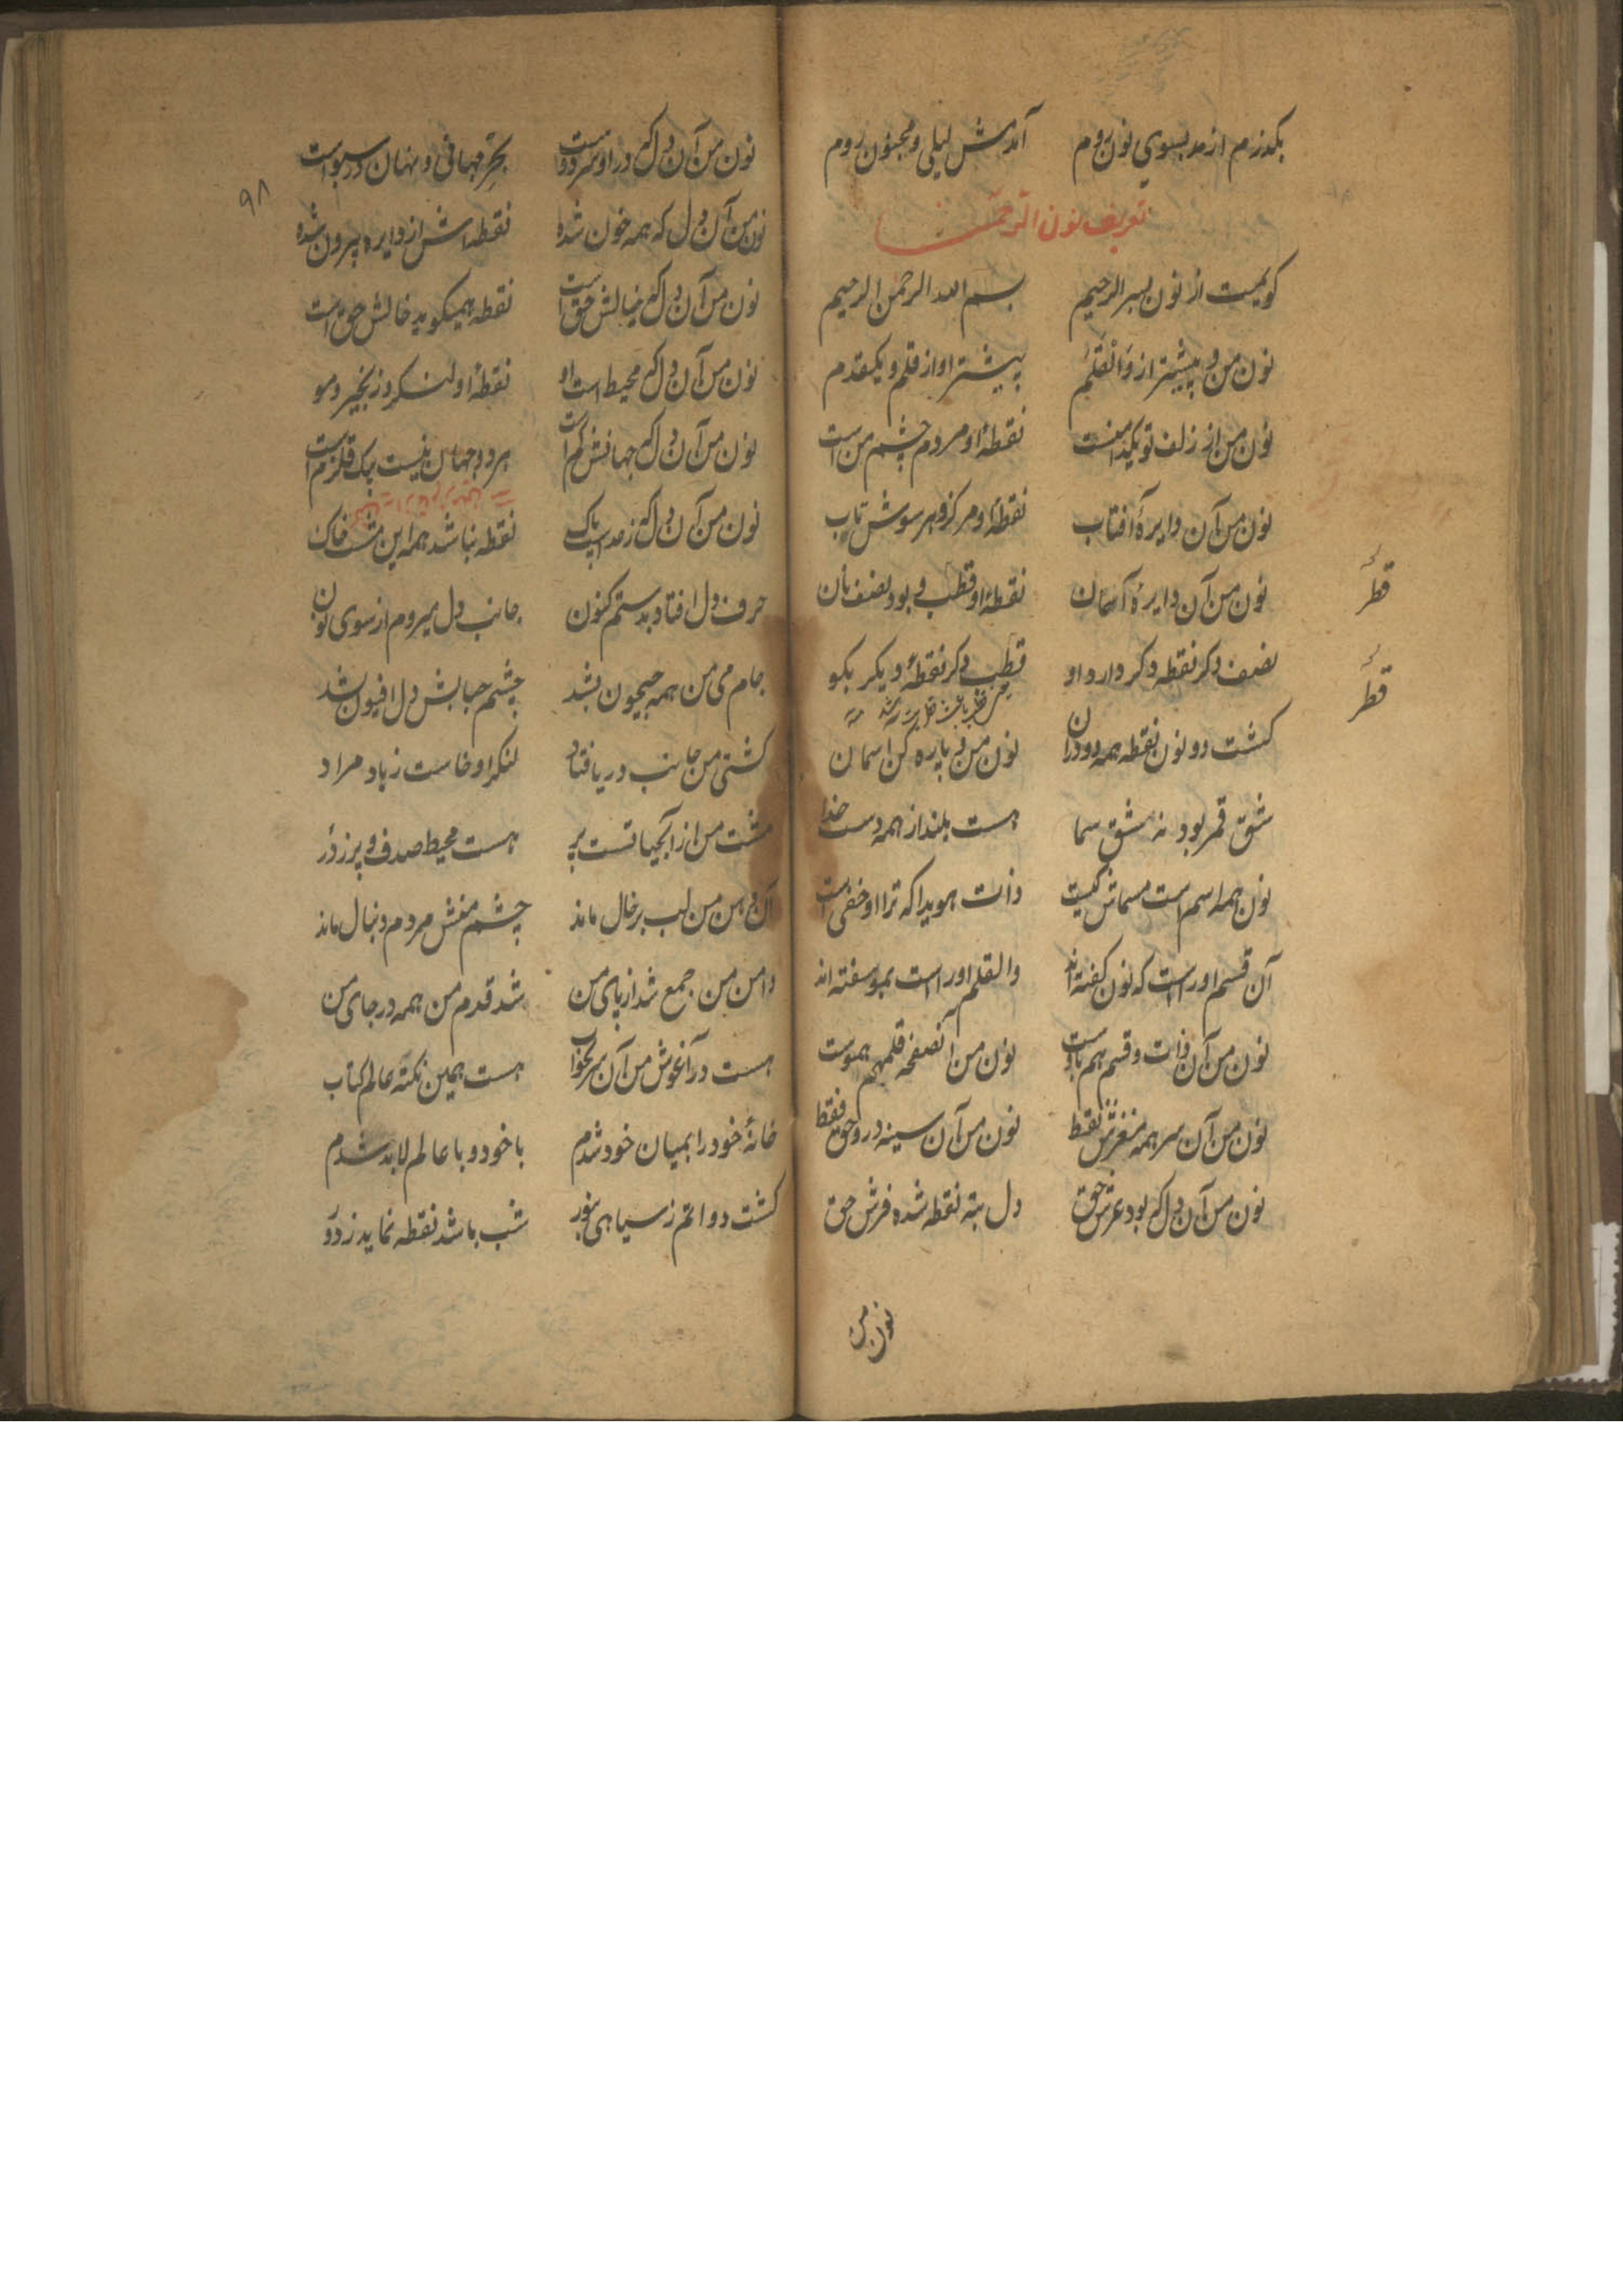 بکذرم از مد بسوی نون روم آمدمش لیلی و مجنون روم
تعریف نون الرحمن
کویمت از نون بسر الرحیم بسم الله الرحمن الرحیم
نون من و پیشتر از والقلم پیشتر او از قلم و یکقدم
نون من از زلف تو نقطهٔ او مردم چشم من است
نون من آن دایرهٔ آفتاب نقطهٔ او مرکز و هر سوش تاب
نون من آن دایرهٔ آسمان نقطهٔ او قطب و بود نصف نان
نصف دکر نقطه دکر دارد او قطب دکر نقطهٔ دیکر بکو
کشت دو نون نقطه همه دو در آن نون من و پاره کن اسمان
شق قمر بود نه شق سما هست بلند از همه دست خدا
نون همه اسم است مسماش کیست ذات هویدا که ترا او خفی است
آن قسم اور است که نون کفته اند والقلم اور است بمو سفته اند
نون من آن ذات و قسم هم باوست نون من آنصفحه قلمهم هموست
نون من آن سر همه مغزش نقط نون من آن سینه درو حق فقط
نون من آن دل که بود عرش حق دل بته نقطه شده فرش حق
نون من
قطر
قطر
۹۸
نون من آن دل که در او سر دوست بحر جهانی و نهان در سبوست
نون من آن دل که همه خون شده نقطه اش از دایره بیرون شده
نون من آن دل که خیالش حق است نقطه همیکوید خالش حق است
نون من آن دل که محیط است او نقطهٔ او لنکر و زنجیر و مو
نون من آن دل که جهانش کم است هر دو جهان نیست یک قلزم است
نون من آن دل که ز مد است پاک نقطه نباشد همه این مشت خاک
حرف دل افتاد بدستم کنون جانب دل میروم از سوی نون
جام می من همه جیحون بشد چشم حبابش دل افیون شد
کشتی من جانب دریا فتاد لنکر او خاست ز باد مراد
مشت من از آبحیاتست پر هست محیط صدف و پر ز در
آن دهن من لب بر خال ماند چشم منش مردم دنبال ماند
دامن من جمع شد از پای من شد قدم من همه در جای من
هست در آغوش من آن سر بخواب هست همین نکته عالم کتاب
خانهٔ خود را بمیان خود شدم با خود و با عالم لابد شدم
کشت دواتم ز سیاهی بنور شب باشد نقطه نماید ز دور